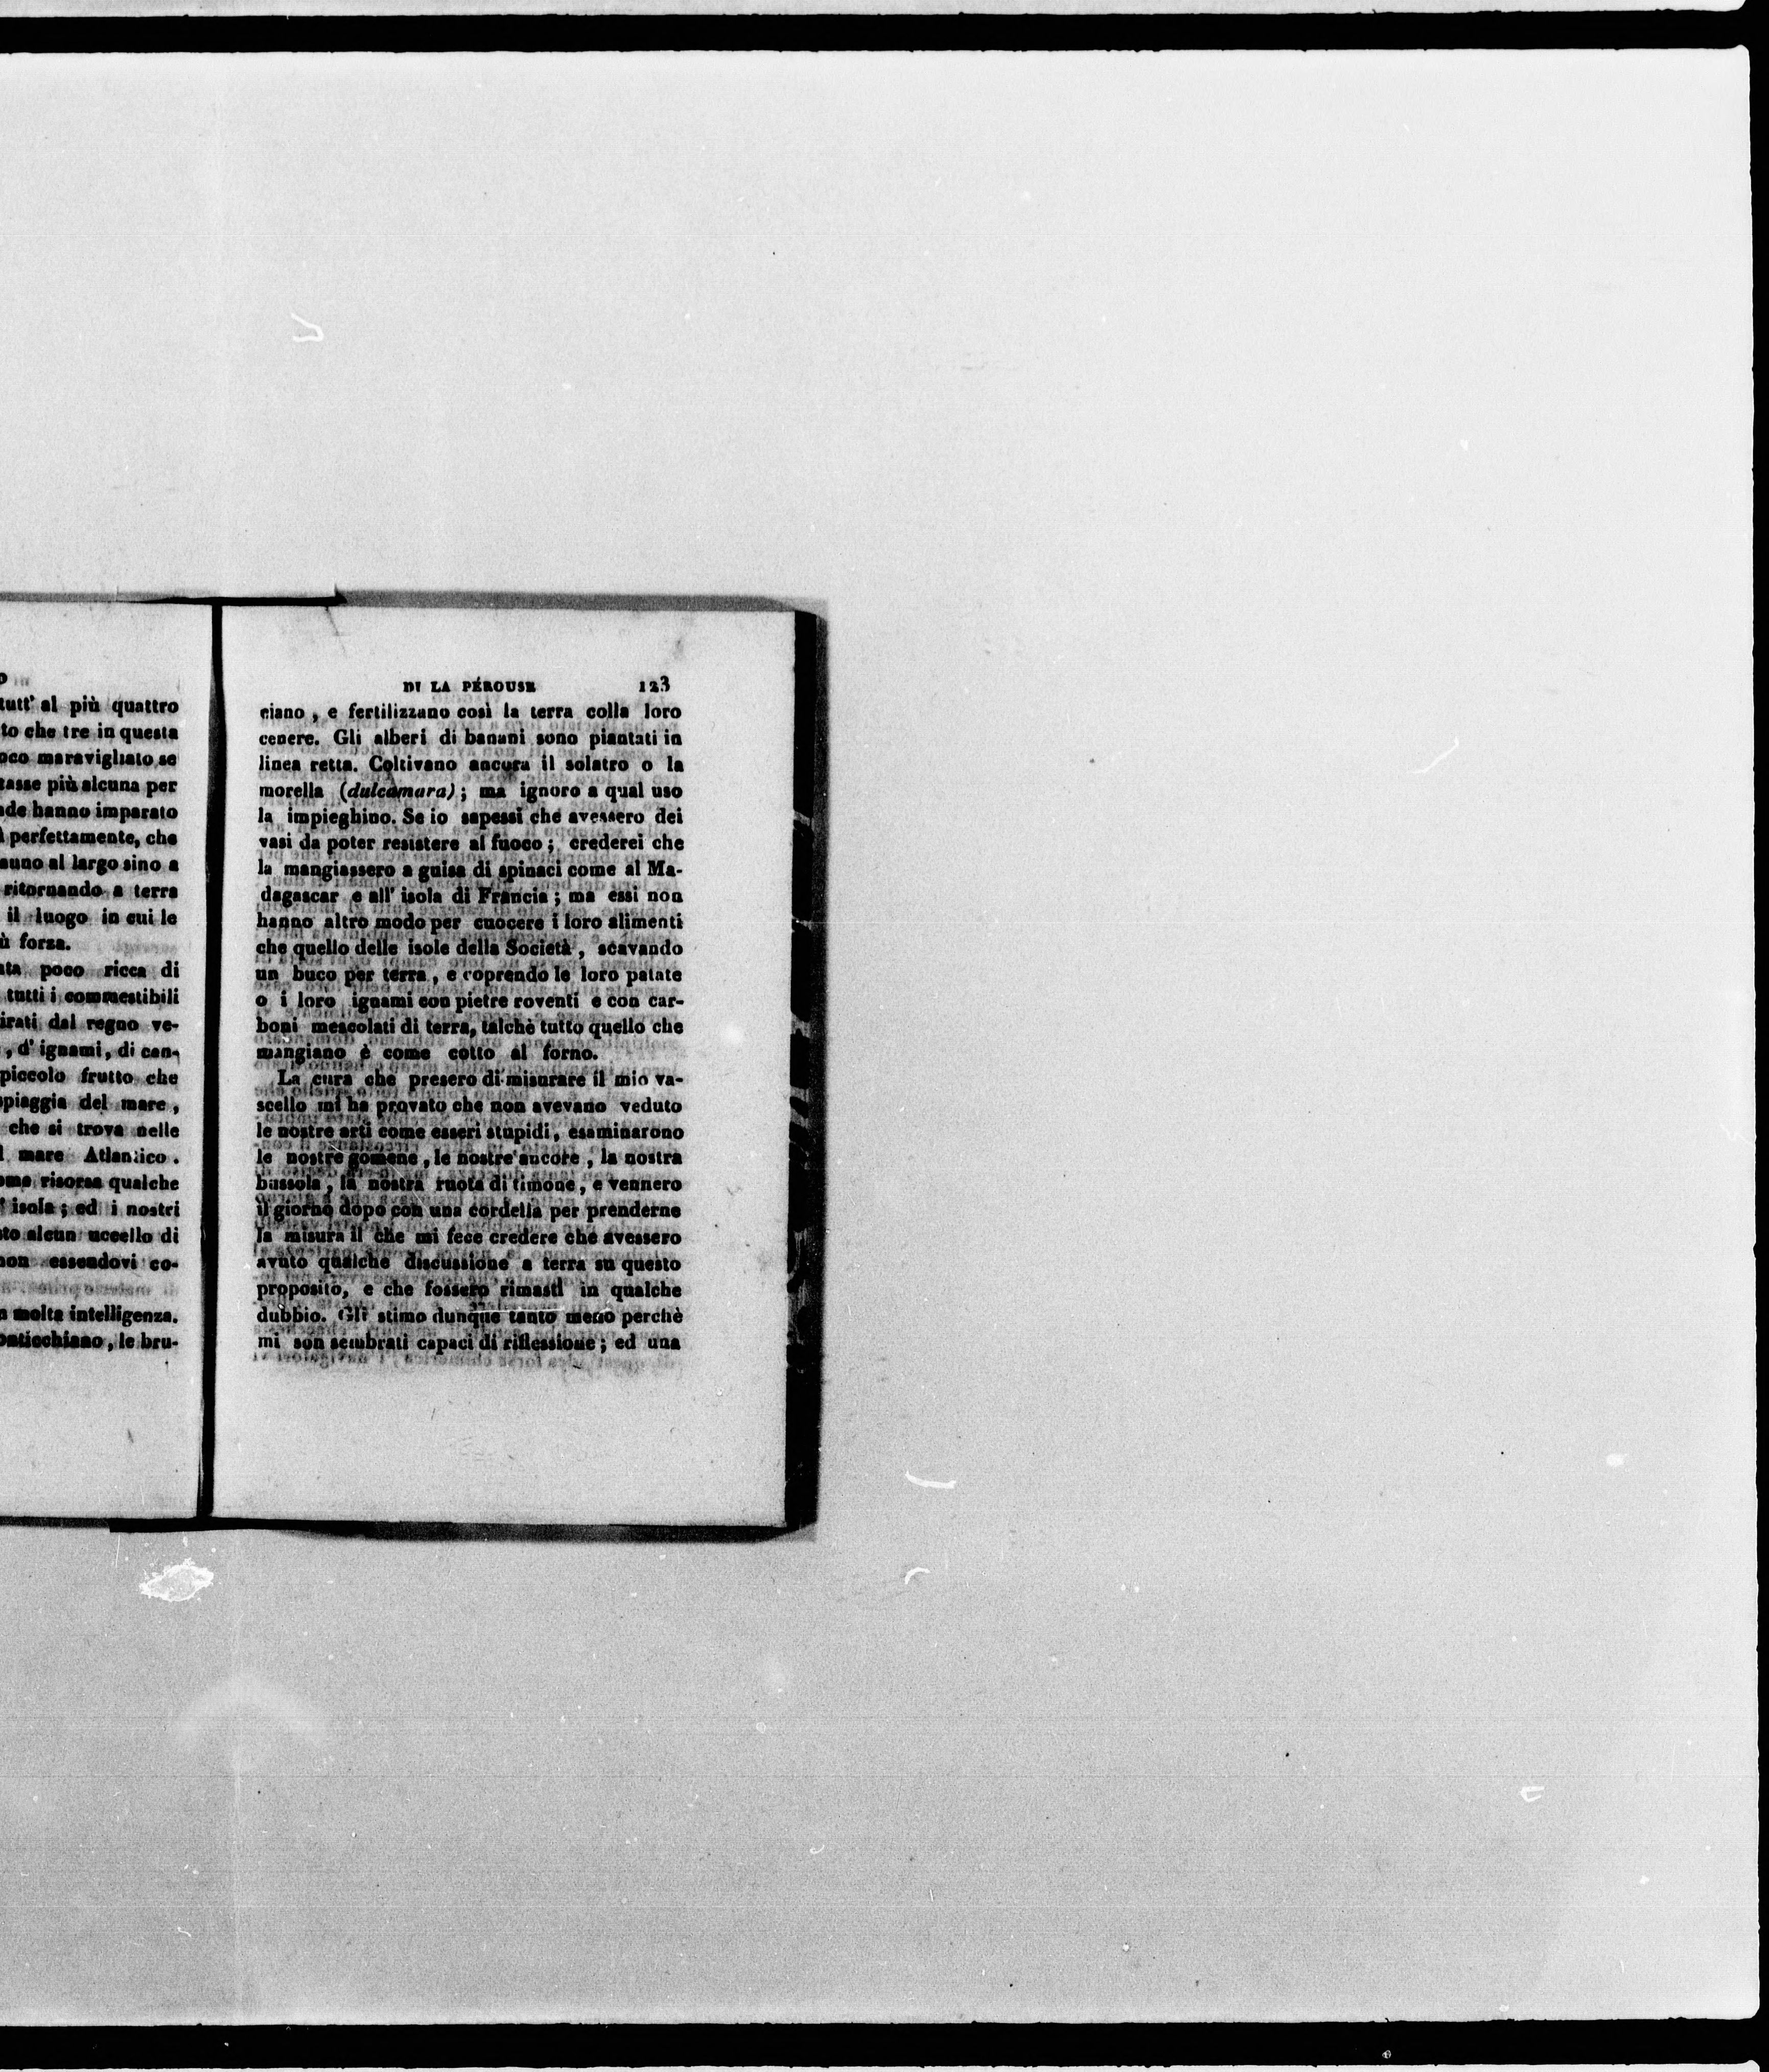 tutt' al più quattro
to che tre in questa
oco maravigliato se
tasse più alcuna per
de hanno imparato
perfettamente, che
al largo sino a
ritornando a terra
il luogo in cui le
ù forza.
ta poco ricca di
tutti i commestibili
irati dal regno ve-
, d' ignami, di can-
piccolo frutto che
piaggia del mare,
che si trova nelle
l mare Atlantico.
ome risorsa qualche
' isola; ed i nostri
to alcun uccello di
non essendovi co-
molta intelligenza.
, le bru-
DI LA PÉROUSE 123
ciano, e fertilizzano così la terra colla loro
cenere. Gli alberi di banani sono piantati in
linea retta. Coltivano ancora il solatro o la
morella (dulcamara); ma ignoro a qual uso
la impieghino. Se io sapessi che avessero dei
vasi da poter resistere al fuoco; crederei che
la mangiassero a guisa di spinaci come al Ma-
dagascar e all' isola di Francia; ma essi non
hanno altro modo per cuocere i loro alimenti
che quello delle isole della Società, scavando
un buco per terra, e coprendo le loro patate
o i loro ignami con pietre roventi e con car-
boni mescolati di terra, talchè tutto quello che
mangiano è come cotto al forno.
La cura che presero di misurare il mio va-
scello mi ha provato che non avevano veduto
le nostre arti come esseri stupidi, esaminarono
le nostre gomene, le nostre ancore, la nostra
bussola, la nostra ruota di timone, e vennero
il giorno dopo con una cordella per prenderne
la misura il che mi fece credere che avessero
avuto qualche discussione a terra su questo
proposito, e che fossero rimasti in qualche
dubbio. Gli stimo dunque tanto meno perchè
mi son sembrati capaci di riflessione; ed una